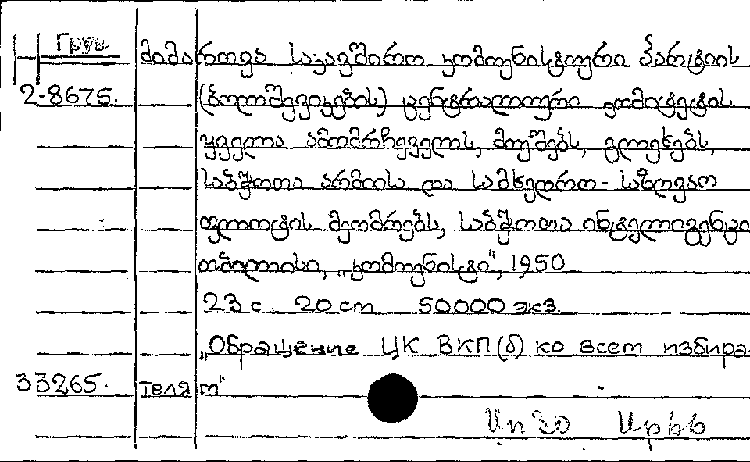 Груз.
მიმართვა საკავშირო კომუნისტური პარტიის
2-8675. (ბოლშევიკების) ცენტრალური კომიტეტის
ყველა ამომრჩეველს, მუშებს, გლეხებს,
საბჭოთა არმიის და სამხედრო-საზღვაო
ფლოტის მეომრებს, საბჭოთა ინტელიგენცი
თბილისი, „კომუნისტი", 1950
23 с 20 cm 50000 экз.
„Обращение ЦК ВКП(б) ко всем избира-
33265. телям"